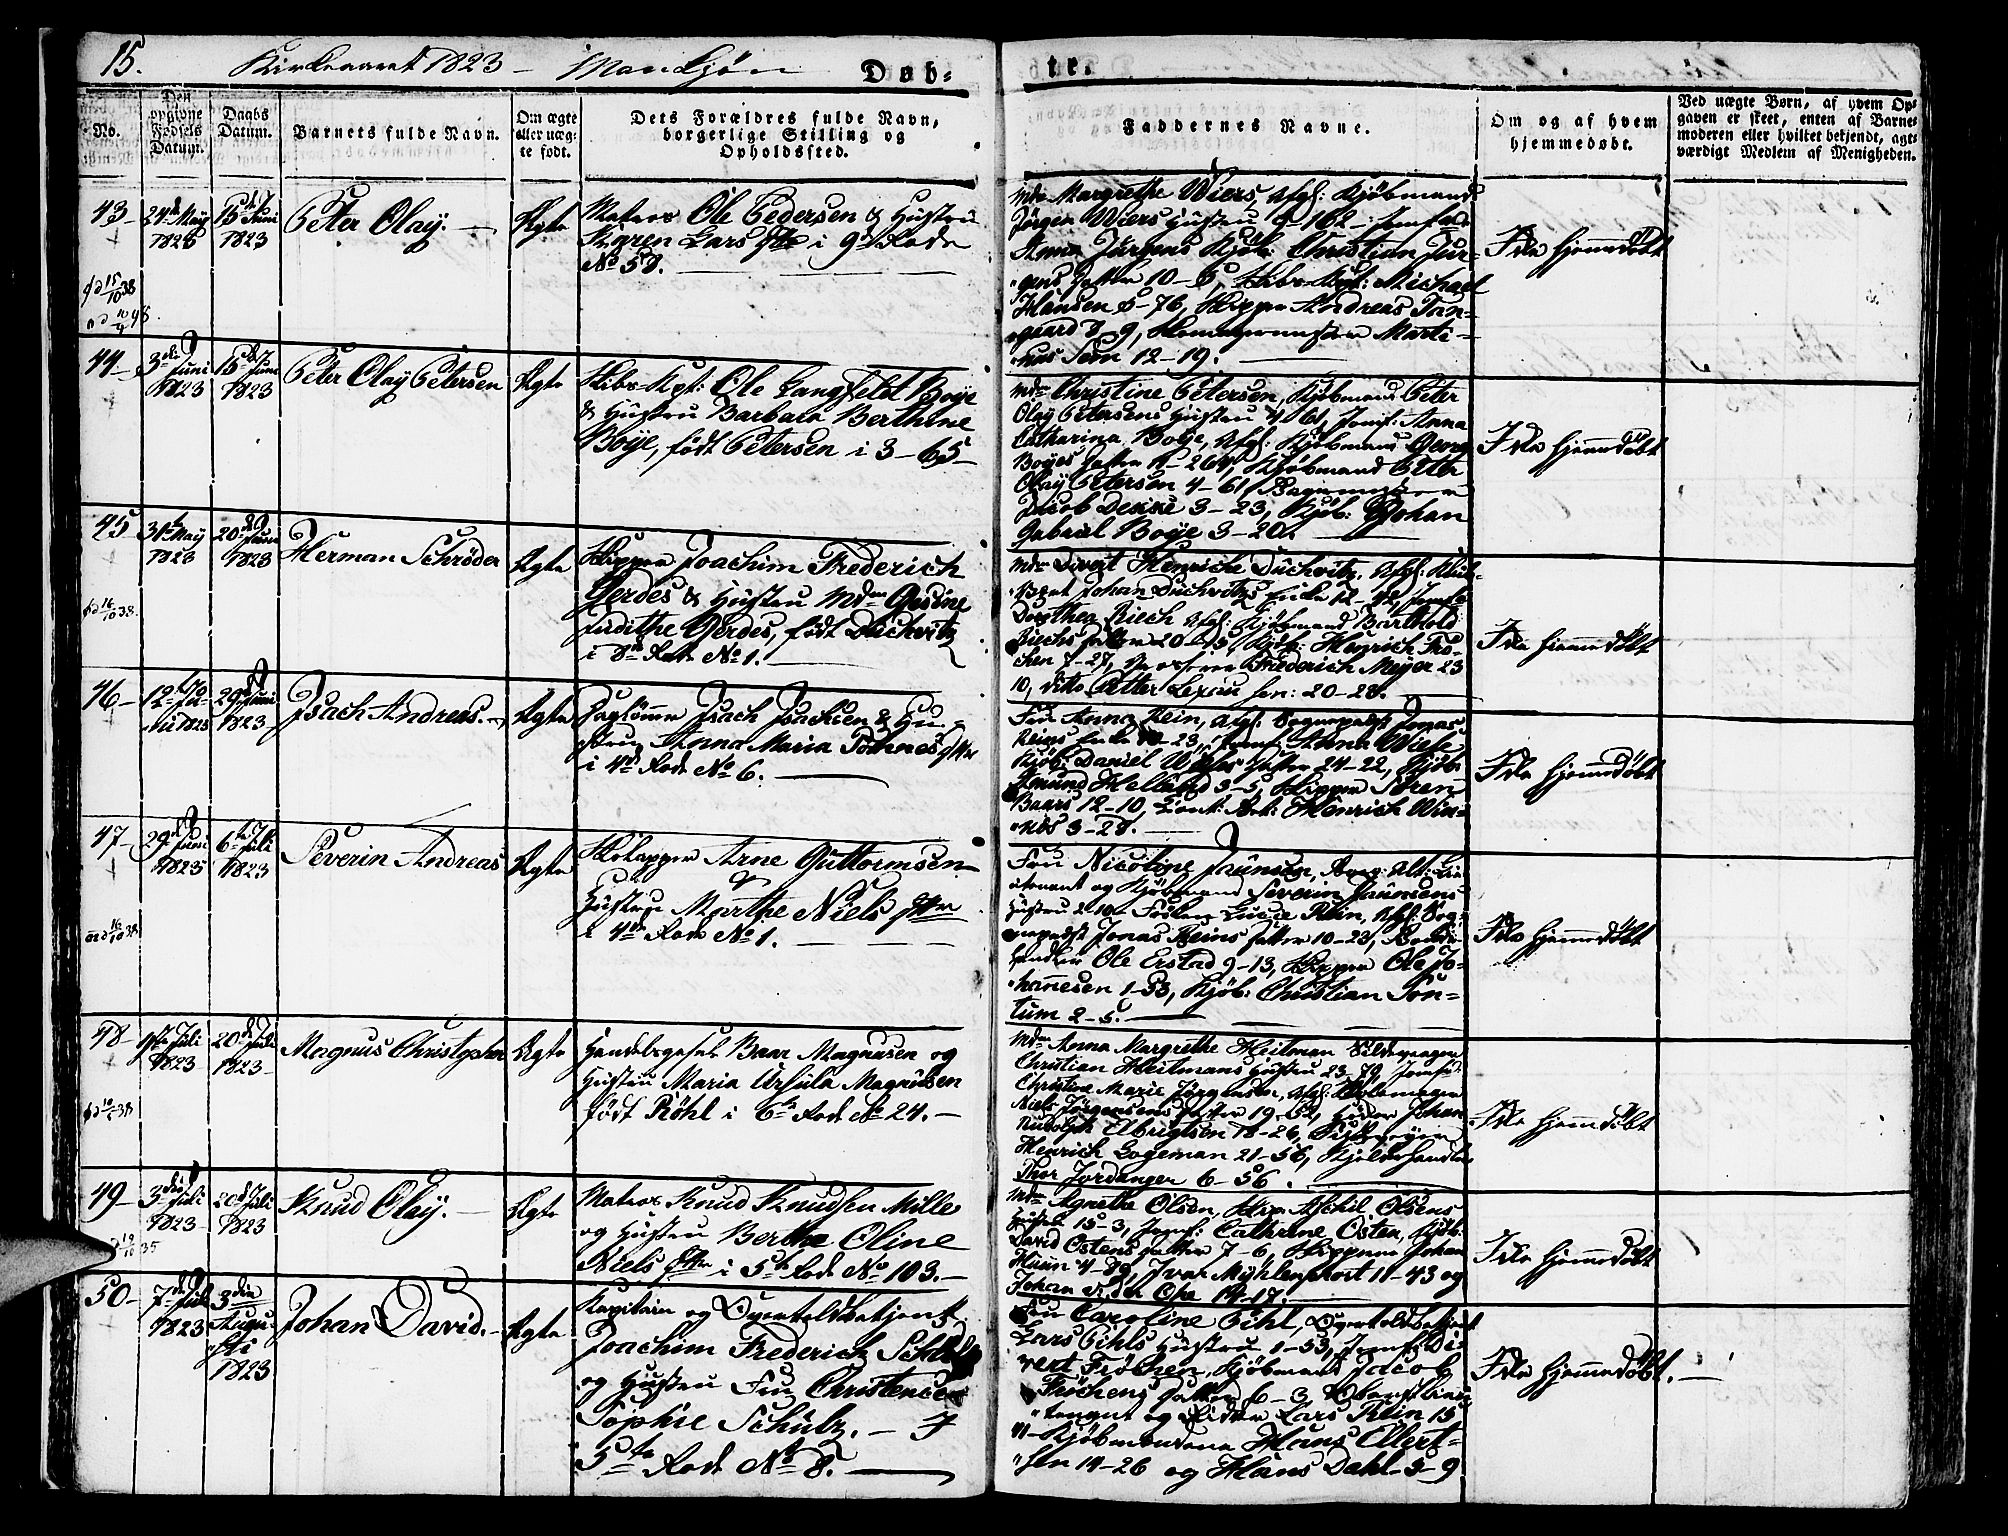 15. Kirkeaaret 1823 – Mandkjøn Døb-
te.
No.
Den opgivne Fødsels Datum.
Daabs Datum.
Barnets fulde Navn.
Om ægte eller uægte født.
Dets Forældres fulde Navn, borgerlige Stilling og Opholdssted.
Faddernes Navne.
Om og af hvem hjemmedøbt.
Ved uægte Børn, af hvem Opgaven er skeet, enten af Barnemoderen eller hviltet bekjendt, agtværdigt Medlem af Menigheden.
43– 24de May 1823 15de Juni 1823 Peter Olaÿ. – Ægte
Matros Ole Pedersen & Hustru
Karen Lars Dtr i 9de Rode
No 58. –
Mdm Margrethe Wiers, Kjøbmand
Jörgen Wiers Hustru 9–162 – Jomfrue
Anna Jürgens Kjøb: Christian Jür-
gens Datter 10–6, Skibs Kpt: Michael
Hansen 5–76, Skipper Andreas Tan-
gaard 8–9, Marti-
nus Sem 12–19. –
Ikke hjemmedøbt
44– 3die Juni 1823 15de Juni 1823 Peter Olaÿ Petersen Ægte
Skibs Kpt: Ole Langfeldt Boÿe
& Hustru Barbara Berthine
Boÿe, født Petersen i 3–65–
Mdm Christine Petersen, Kjøbmand Peter
Olaÿ Petersens Hustru 4–61, Jomf: Anna
Catharina Boÿe, Afg: Kjøbmand Georg
Boÿes Datter –264, Kjøbmand Peter
Olaÿ Petersen 4–61, Bagermester
Jacob Dekke 3–23, Kjøb: Johan
Gabriel Boÿe 3–20. –
Ikke hjemmedøbt
45 31te Maÿ 1823 20de Juni 1823 Herman Schrøder Ægte
Skipper Joachim Frederich
Gerdes & Hustru Mdm Gesine
Judithe Gerdes, født Düchvitz
i 8de Rode No 1. –
Mdm Divert Henriche Düchvitz, Afg:
Johan Düchvitz Enke 12–12, Jomf:
Dorthea Riech Afg: Kjøbmand Barthold
Riechs Datter 20–13, Kjøb: Heinrich Frö-
chen 7–27, Frederich Meÿer 23
10, ditto Petter Lexau sen: 20–28. –
Ikke hjemmedøbt
46– 12te Juni 1823 29de Juni 1823 Isach Andreas. – Ægte
Daglønner Isach Isachsen & Hu-
stru Anna Maria Johnes Dtr
i 4de Rode No 6. –
Fru Anna Rein, Afg: Sognepræst Jonas
Reins Enke –23, Jomf: Anna Wiese
Kjøb: Daniel Wieses Datter 24–22, Kjøb:
Amund Helland 3–5, Skipper Søren
Baars 12–10, Henrich Win-
3–28. –
Ikke hjemmedøbt
47– 29de Juni 1823 6te Juli 1823 Severin Andreas Ægte
Skolapper Arne Guttormsen
Hustru Marthe Niels Dtr
i 4de Rode No 1. –
Fru Nicoline Jaünsen, Li-
eutenant og Kjøbmand Severin Jaünsens
Hustru 2–10 Frøken Lucie Rein, Afg: Sog-
nepræst Jonas Reins Datter 10–23,
handler Ole Erstad 9–13, Skipper Ole Jo-
hannesen 1–53, Kjøb: Christian Son-
tum 2–5. –
Ikke hjemmedøbt
48– 1ste Juli 1823 20de Juli 1823 Magnus Christopher Ægte
Handelsgesel Baar Magnusen og
Hustru Maria Ursula Magnusen
født Röhl i 6te Rode No 24. –
Mdm Anna Margrethe Heitman
Christian Heitmans Hustru 23–79, Jomf:
Christine Marie Jörgensen, Afg:
Niels Jörgensens Datter 19–52, Johan
Rudolph Elbrigtsen 18–26,
Henrich Logeman 21–56,
Thor Jordanger 6–56. –
Ikke hjemmedøbt
49– 3die Juli 1823 20de Juli 1823 Knud Olaÿ. – Ægte
Matros Knud Knudsen Mille
og Hustru Berthe Oline
Niels Dtr i 5te Rode No 103. –
Mdm Agnethe Olsen, Skip: Askil Olsens
Hustru 15–3, Jomf: Cathrine Osten, Kjøb:
David Ostens Datter 7–6, Skipper Johan
Huun 4–89, Ivar Mÿhlenphort 11–43 og
Johan v: der Ohe 14–17. –
Ikke hjemmedøbt
50– 7de Juli 1823 3die Augusti 1823 Johan David. – Ægte
Kapitain og Overtoldbetjent
Joachim Frederich Schultz
og Hustru Fru Christence
Sophie Schultz. – I
5te Rode No 8. –
Fru Caroline Pihl, Overtoldbetjent
Lars Pihls Hustru 1–53, Jomf: Di-
vert Fröchen, Kjøbmand Jacob
Fröchens Datter 6–3
og Ridder Lars Rein 15
11– Kjøbmændene Hans Ellert-
sen 14–26 og Hans Dahl–5–9
Ikke hjemmedøbt. –